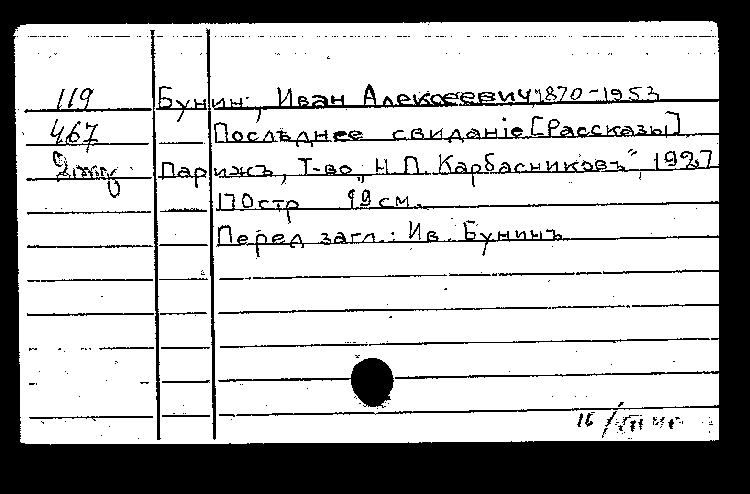 119 Бунин, Иван Алексеевич, 1870-1953
467 Последнее свиданіе [Рассказы]
2 экз Париж, Т-во „Н.П. Карбасниковъ", 1927
170 стр 19 см.
Перед загл.: Ив. Бунинъ